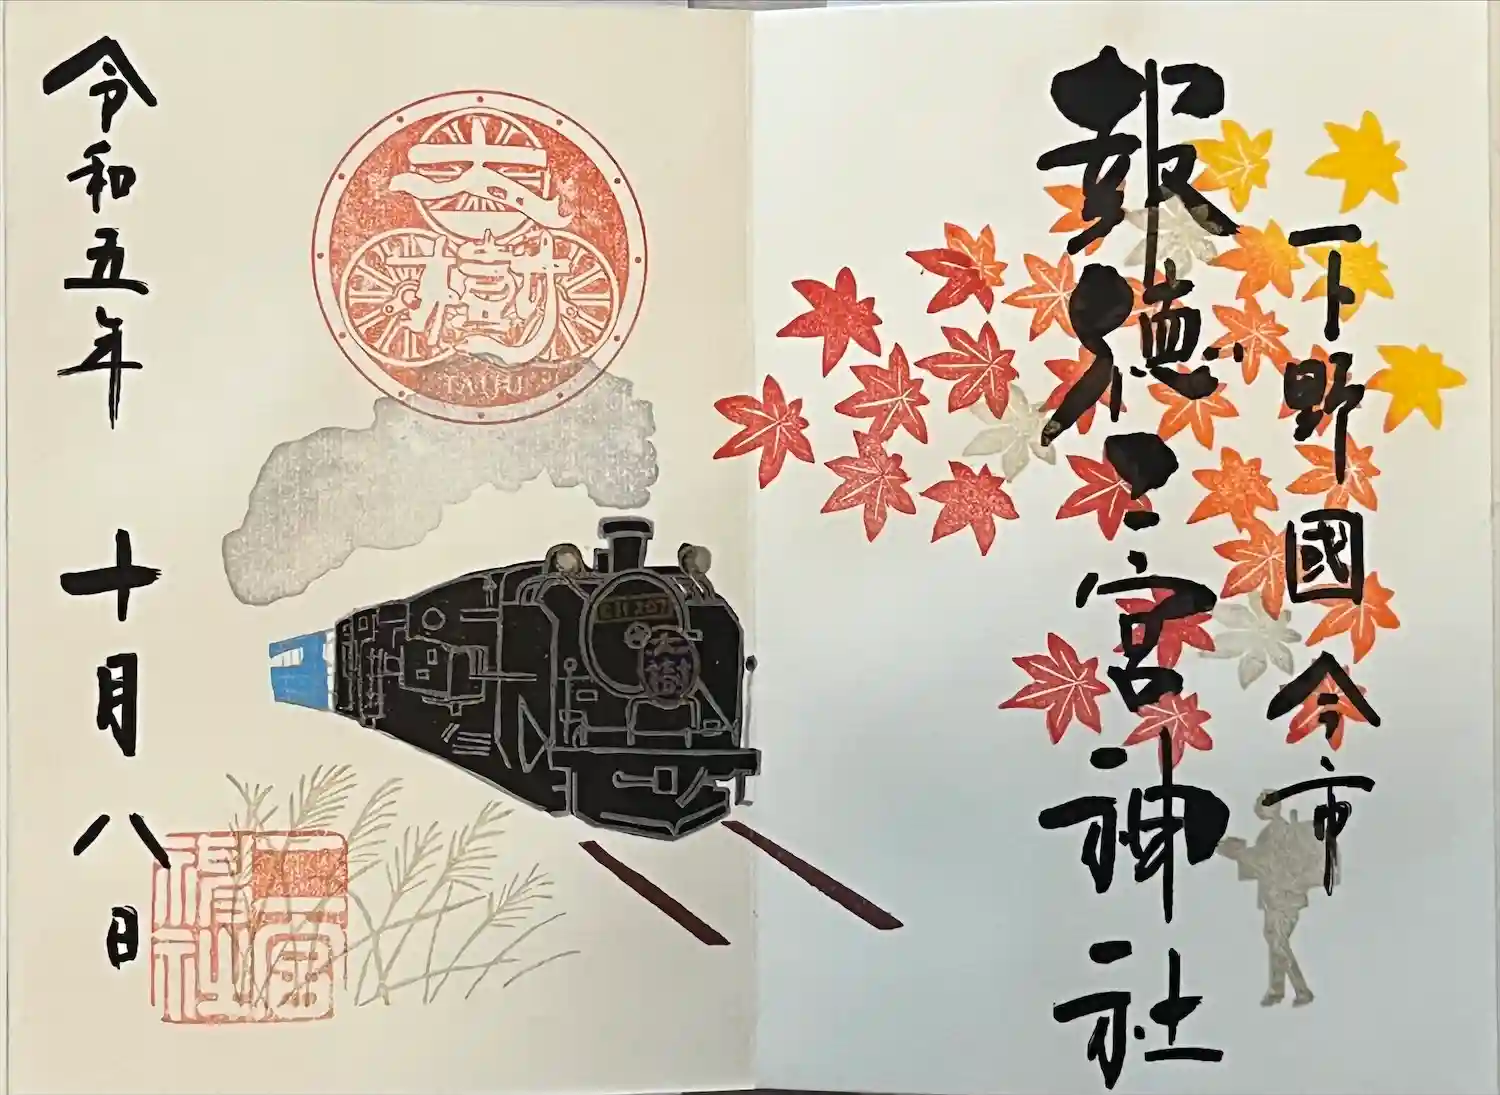 下野國今市
報徳二宮神社
大樹
TAIJU
C11 207
大樹
二宮
神社
令和五年 十月八日